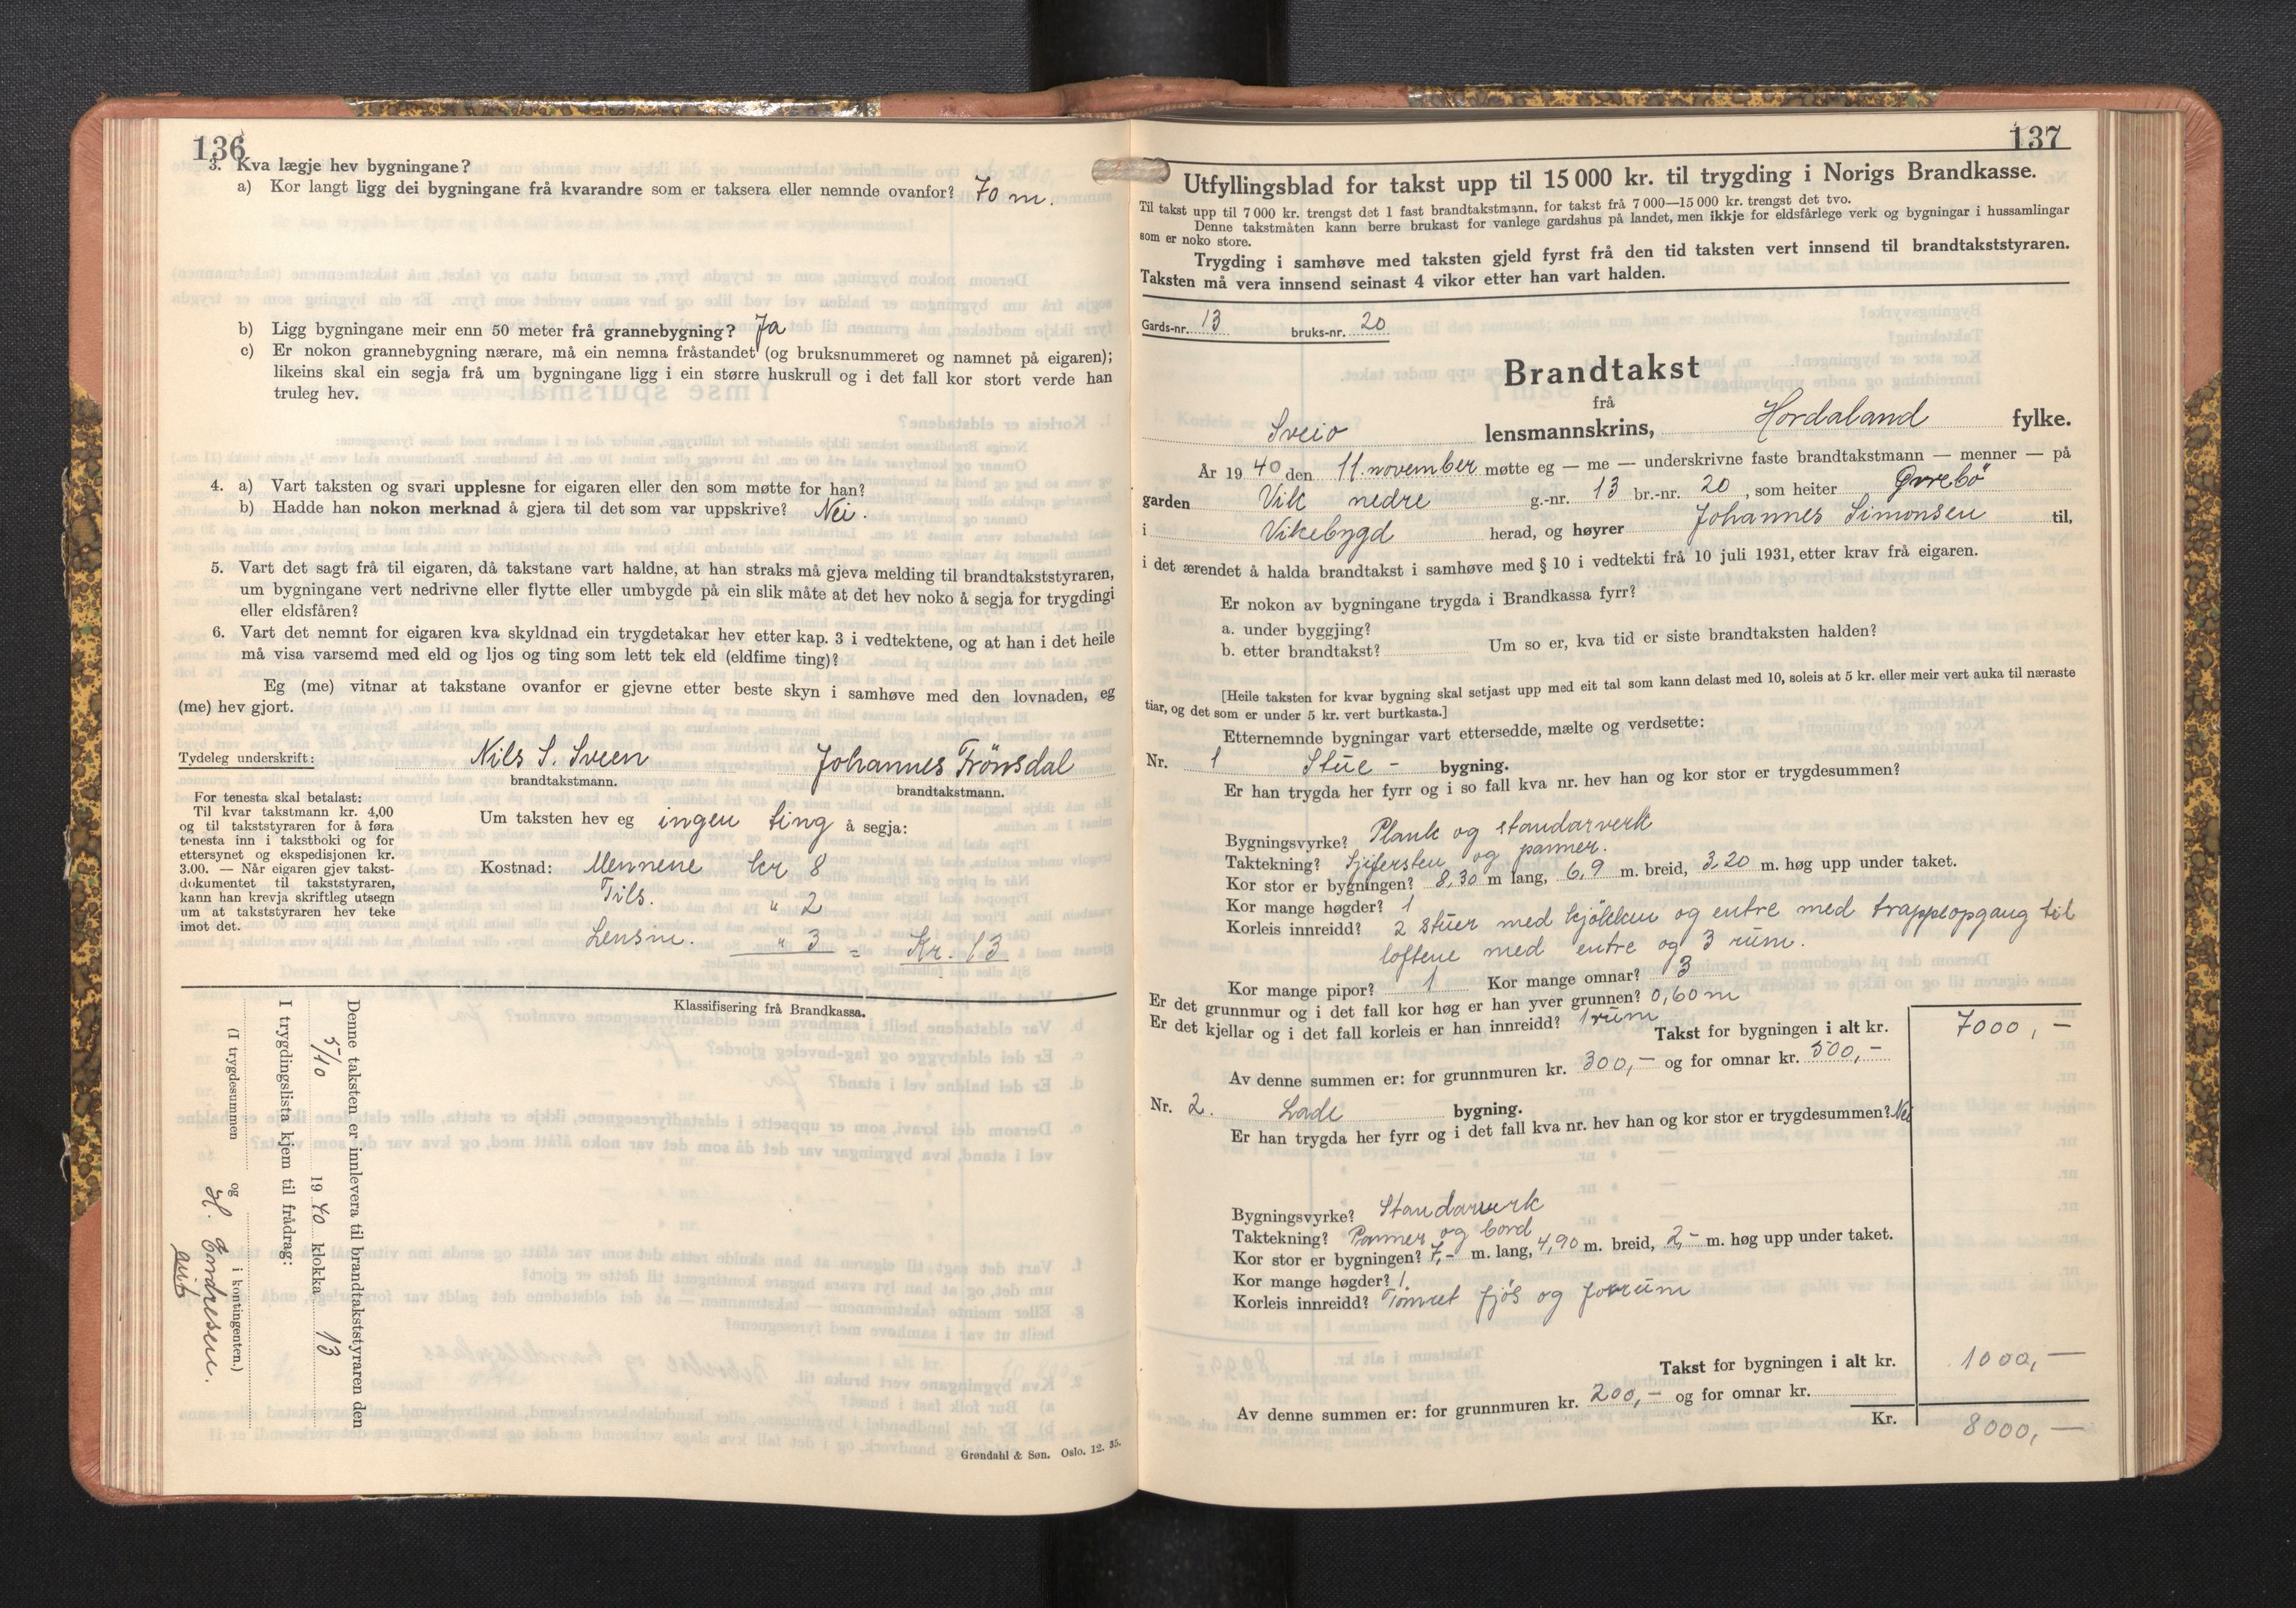 136
3. Kva lægje hev bygningane?
a) Kor langt ligg dei bygningane frå kvarandre som er taksera eller nemnde ovanfor? 70 m.
b) Ligg bygningane meir enn 50 meter frå grannebygning? Ja
c) Er nokon grannebygning nærare, må ein nemna fråstandet (og bruksnummeret og namnet på eigaren);
likeins skal ein segja frå um bygningane ligg i ein større huskrull og i det fall kor stort verde han
truleg hev.
4. a) Vart taksten og svari upplesne for eigaren eller den som møtte for han?
b) Hadde han nokon merknad å gjera til det som var uppskrive? Nei.
5. Vart det sagt frå til eigaren, då takstane vart haldne, at han straks må gjeva melding til brandtakststyraren,
um bygningane vert nedrivne eller flytte eller umbygde på ein slik måte at det hev noko å segja for trygdingi
eller eldsfåren?
6. Vart det nemnt for eigaren kva skyldnad ein trygdetakar hev etter kap. 3 i vedtektene, og at han i det heile
må visa varsemd med eld og ljos og ting som lett tek eld (eldfime ting)?
Eg (me) vitnar at takstane ovanfor er gjevne etter beste skyn i samhøve med den lovnaden, eg
(me) hev gjort.
Tydeleg underskrift: Nils S. Sveen Johannes Trönsdal
brandtakstmann. brandtakstmann.
For tenesta skal betalast:
Til kvar takstmann kr. 4,00
og til takststyraren for å føra
tenesta inn i takstboki og for
ettersynet og ekspedisjonen kr.
3.00. — Når eigaren gjev takst-
dokumentet til takststyraren,
kann han krevja skriftleg utsegn
um at takststyraren hev teke
imot det.
Um taksten hev eg ingen ting å segja:
Kostnad: Mennene kr 8
Tils. " 2
Lensm. " 3 = Kr. 13
Klassifisering frå Brandkassa.
Denne taksten er innlevera til brandtakststyraren den
5/10 1940 klokka 13
I trygdingslista kjem til frådrag:
(I trygdesummen og i kontingenten.)
H.
Grøndahl & Søn. Oslo. 12. 35.
137
Utfyllingsblad for takst upp til 15 000 kr. til trygding i Norigs Brandkasse.
Til takst upp til 7 000 kr. trengst det 1 fast brandtakstmann, for takst frå 7 000—15 000 kr. trengst det tvo.
Denne takstmåten kann berre brukast for vanlege gardshus på landet, men ikkje for eldsfårlege verk og bygningar i hussamlingar
som er noko store.
Trygding i samhøve med taksten gjeld fyrst frå den tid taksten vert innsend til brandtakststyraren.
Taksten må vera innsend seinast 4 vikor etter han vart halden.
Gards-nr. 13 bruks-nr. 20
Brandtakst
frå
Sveio lensmannskrins, Hordaland fylke.
År 1940 den 11. november møtte eg — me — underskrivne faste brandtakstmann — menner — på
garden Vik nedre g.-nr. 13 br.-nr. 20, som heiter Øvrebö
i Vikebygd herad, og høyrer Johannes Simonsen til,
i det ærendet å halda brandtakst i samhøve med § 10 i vedtekti frå 10 juli 1931, etter krav frå eigaren.
Er nokon av bygningane trygda i Brandkassa fyrr?
a. under byggjing?
b. etter brandtakst? Um so er, kva tid er siste brandtaksten halden?
[Heile taksten for kvar bygning skal setjast upp med eit tal som kann delast med 10, soleis at 5 kr. eller meir vert auka til næraste
tiar, og det som er under 5 kr. vert burtkasta.]
Etternemnde bygningar vart ettersedde, mælte og verdsette:
Nr. 1 Stue - bygning.
Er han trygda her fyrr og i so fall kva nr. hev han og kor stor er trygdesummen?
Bygningsvyrke? Plank og standarverk
Taktekning? Sjifersten og panner.
Kor stor er bygningen? 8,30 m lang, 6,9 m. breid, 3,20 m. høg upp under taket.
Kor mange høgder? 1
Korleis innreidd? 2 stuer med kjökken og entre med trappeopgang til
loftene med entre og 3 rum.
Kor mange pipor? 1 Kor mange omnar? 3
Er det grunnmur og i det fall kor høg er han yver grunnen? 0,60 m
Er det kjellar og i det fall korleis er han innreidd? 1 rum
Takst for bygningen i alt kr. 7000,—
Av denne summen er: for grunnmuren kr. 300,— og for omnar kr. 500,—
Nr. 2. Lade bygning.
Er han trygda her fyrr og i det fall kva nr. hev han og kor stor er trygdesummen? Nei
Bygningsvyrke? Standarverk
Taktekning? Panner og bord
Kor stor er bygningen? 7,- m. lang, 4,90 m. breid, 2,- m. høg upp under taket.
Kor mange høgder? 1.
Korleis innreidd? Tömret fjös og forrum
Takst for bygningen i alt kr. 1000,—
Av denne summen er: for grunnmuren kr. 200,— og for omnar kr.
Kr. 8000,—